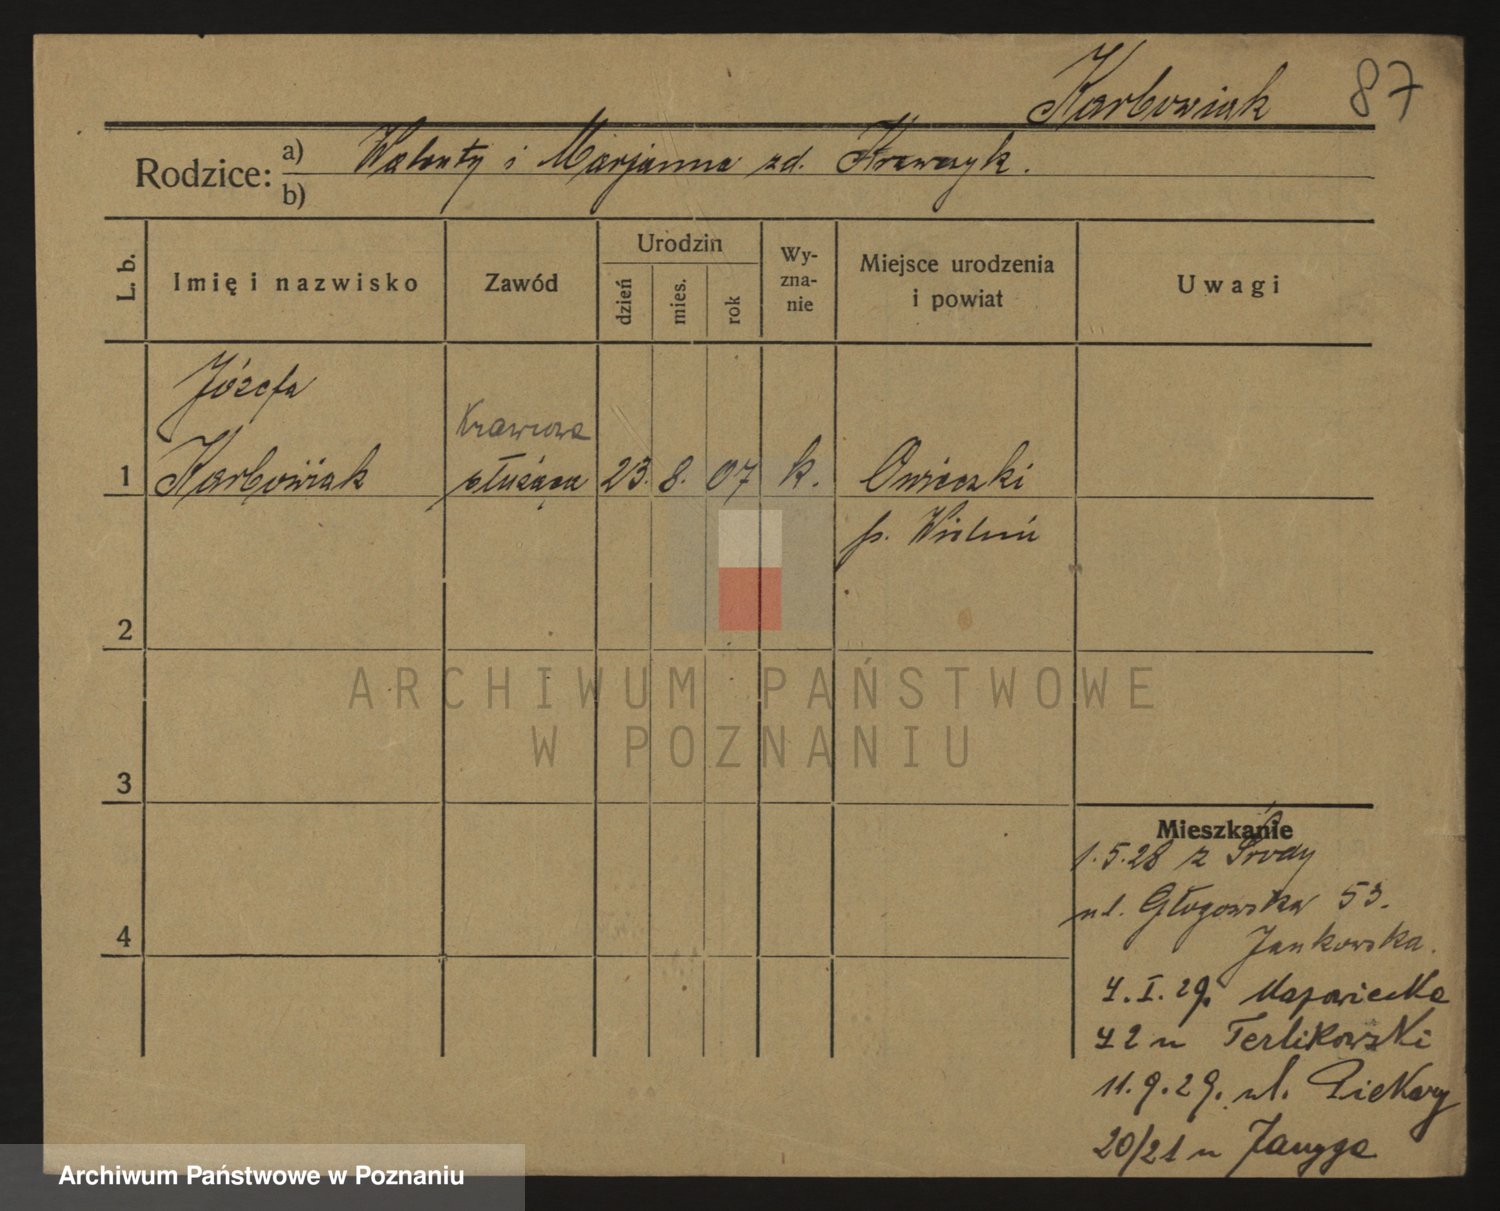 Karbowiak 87
Rodzice: a) Walenty i Marjanna zd. Krawczyk.
b)
L. b. Imię i nazwisko Zawód Urodzin dzień mies. rok Wy-zna-nie Miejsce urodzenia i powiat Uwagi
Józefa
Krawcowa
1 Karbowiak służąca 23. 8. 07 k. Owieczki
p. Wieluń
2
ARCHIWUM PAŃSTWOWE
W POZNANIU
3
Mieszkanie
1.5.28 z Środy
ul. Głogowska 53.
4
Jankowska.
4.I.29. Mazowiecka
42 u Terlikowski
11.9.29. ul. Piekary
20/21 u
Archiwum Państwowe w Poznaniu